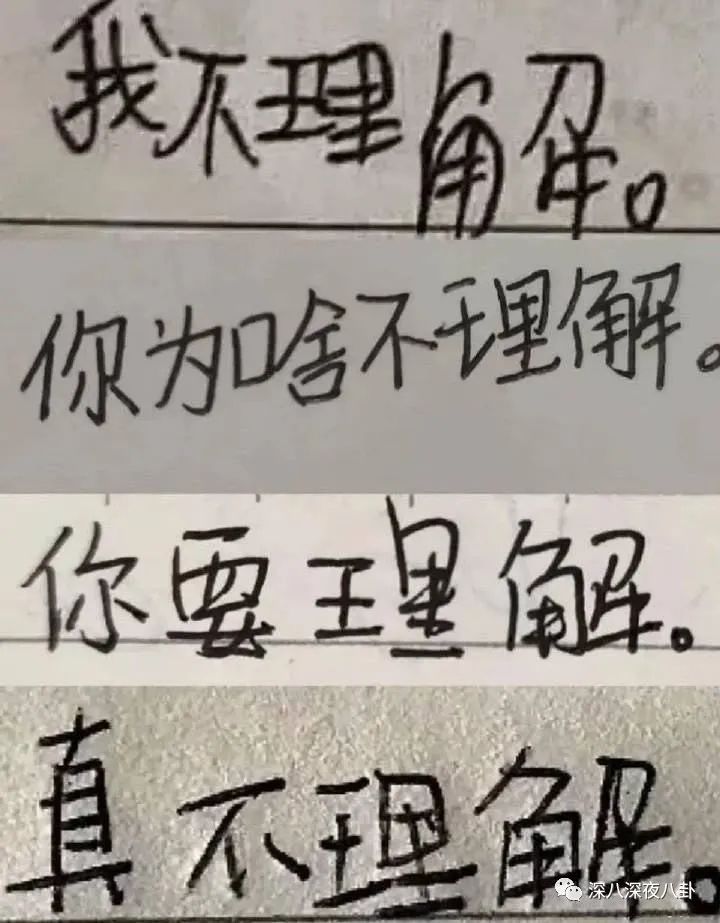 我不理解。
你为啥不理解。
你要理解。
真不理解。
深八深夜八卦